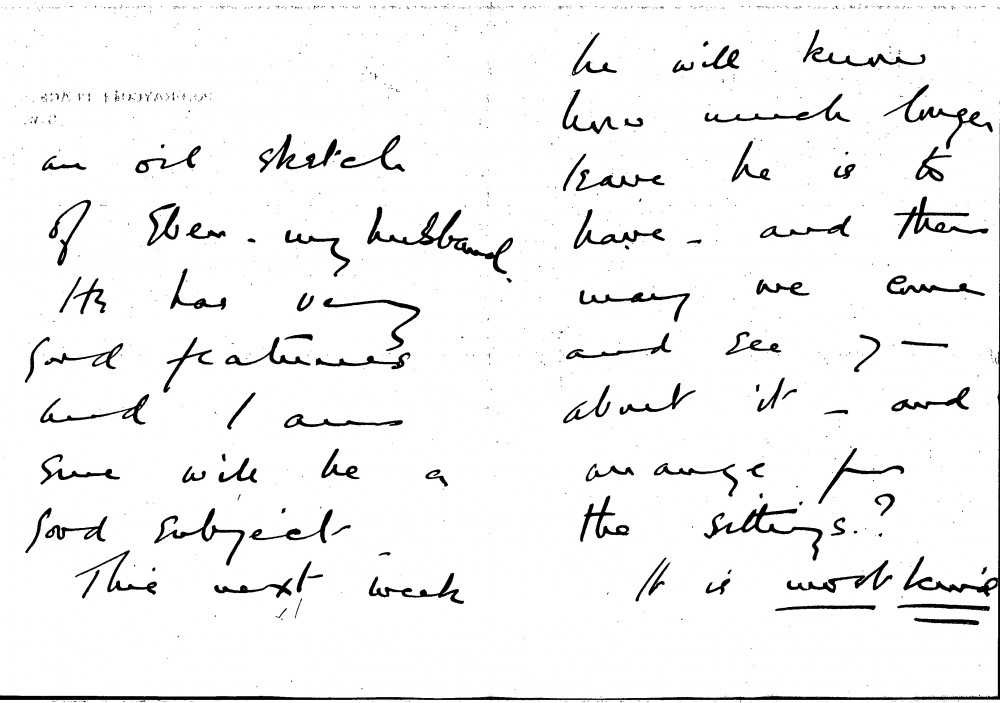 an oil sketch
of Eben - my husband.
He has very
good features
and I am
sure will be a
good subject
This next week
he will know
how much longer
leave he is to
have - and then
may we come
and see
about it - and
arrange for
the sittings?
It is most kind